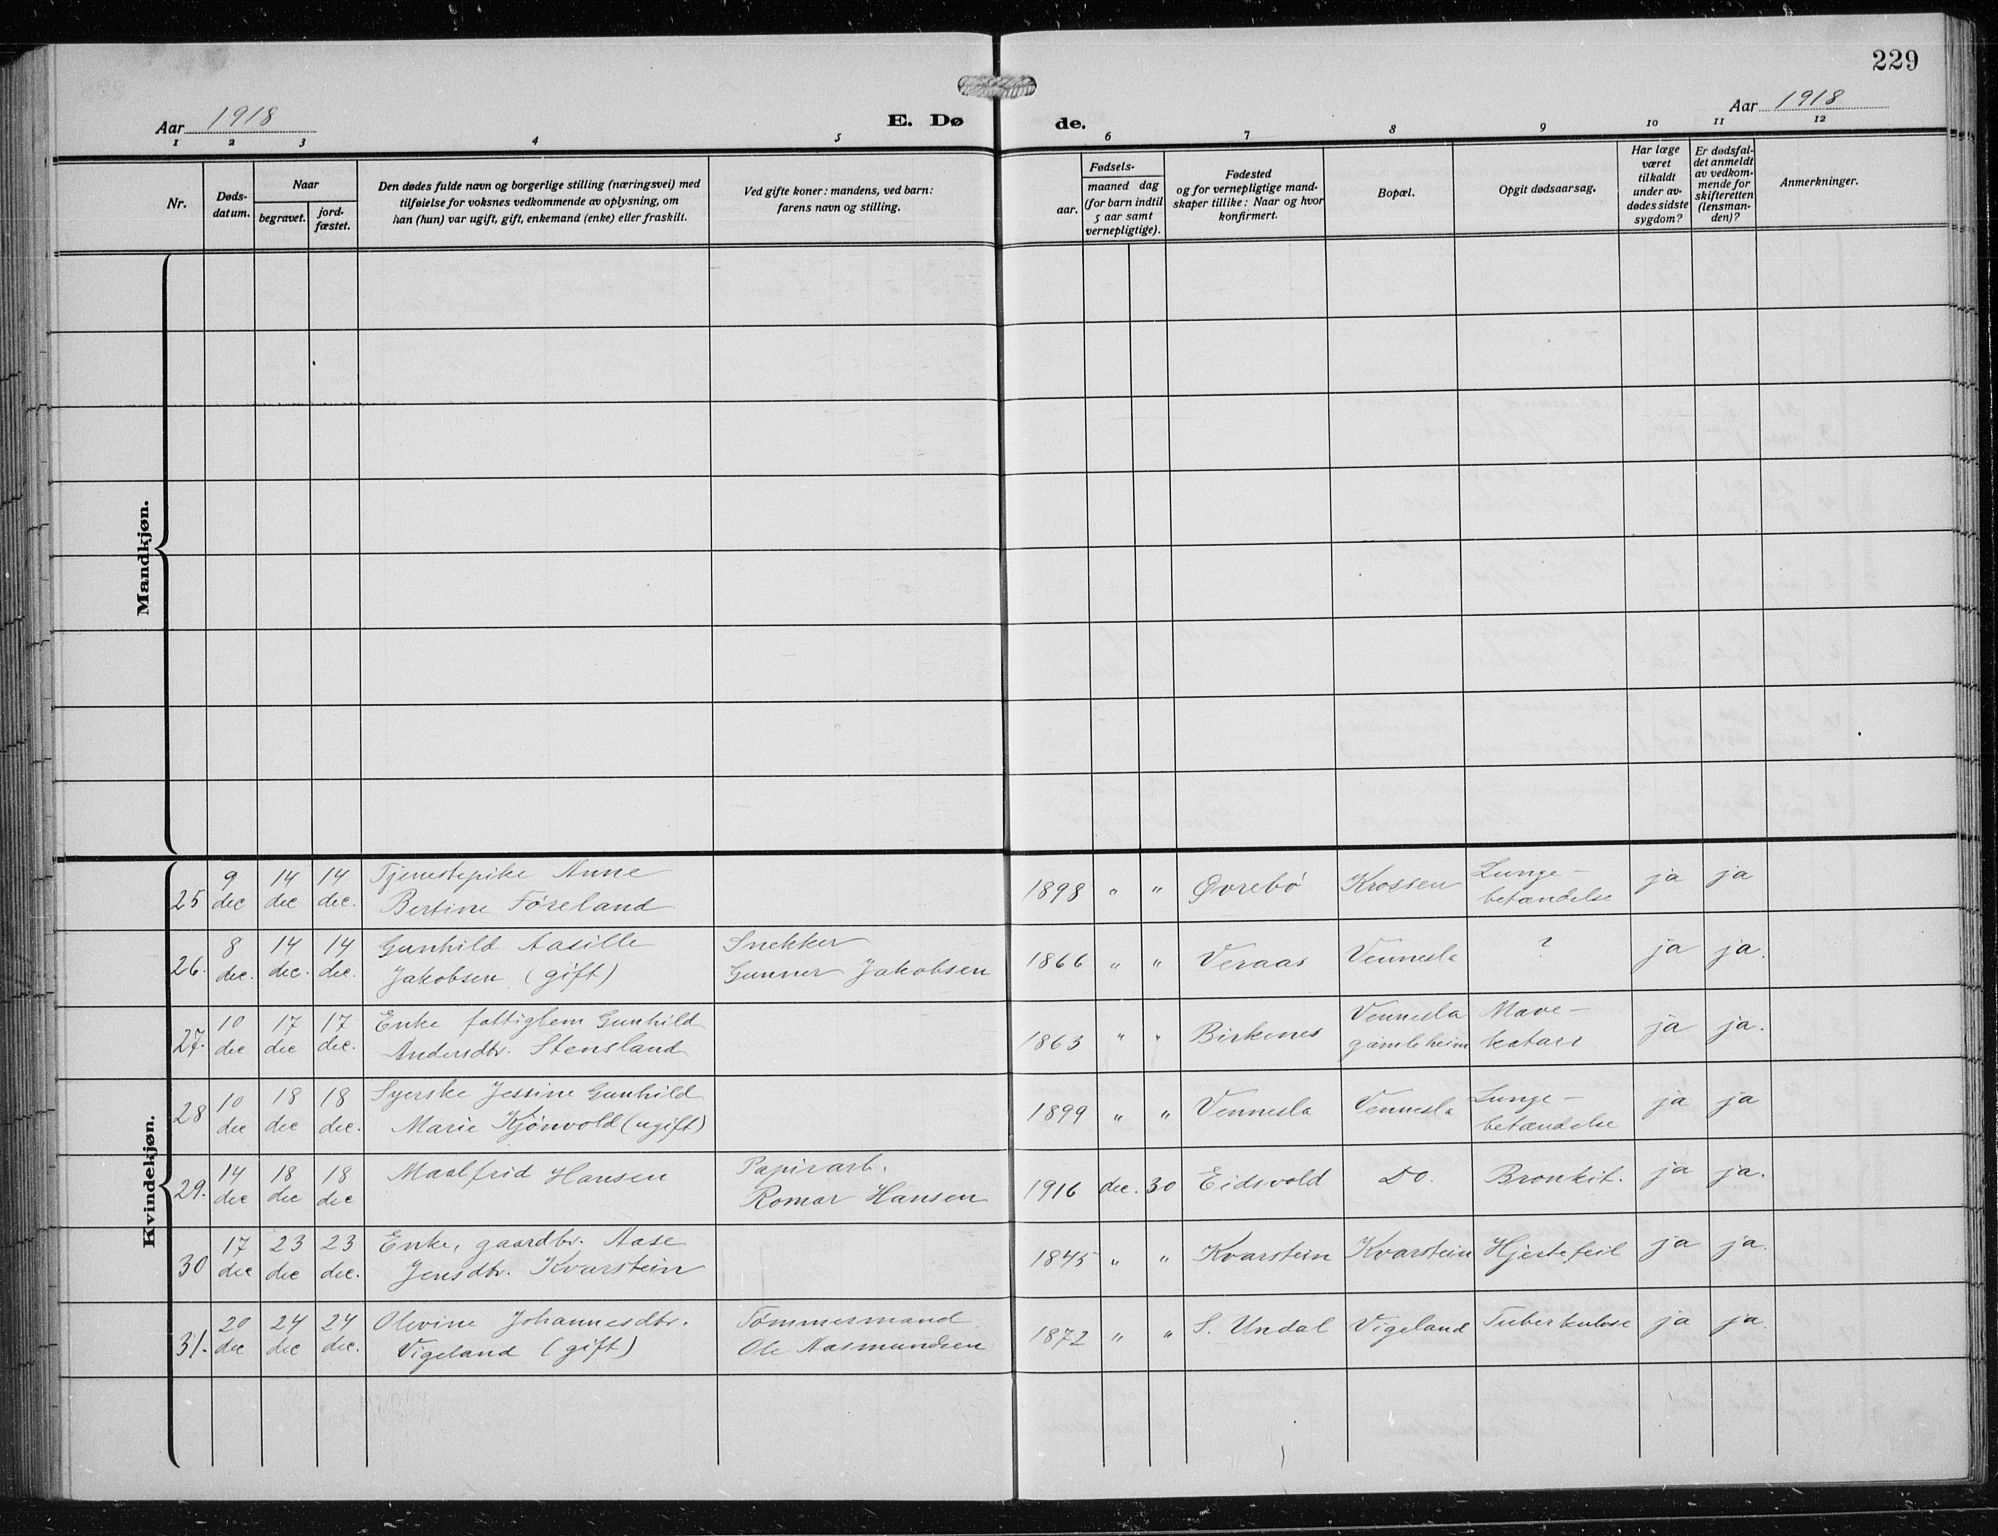 229
Aar 1918
Aar 1918
E. Dø
de.
1 2 3 4 5 6 7 8 9 10 11 12
Nr.
Døds-
datum.
Naar
begravet.
jord-
fæstet.
Den dødes fulde navn og borgerlige stilling (næringsvei) med
tilføielse for voksnes vedkommende av oplysning, om
han (hun) var ugift, gift, enkemand (enke) eller fraskilt.
Ved gifte koner: mandens, ved barn:
farens navn og stilling.
Fødsels-
aar.
maaned dag
(for barn indtil
5 aar samt
vernepligtige).
Fødested
og for vernepligtige mand-
skaper tillike: Naar og hvor
konfirmert.
Bopæl.
Opgit dødsaarsag.
Har læge
været
tilkaldt
under av-
dødes sidste
sygdom?
Er dødsfal-
det anmeldt
av vedkom-
mende for
skifteretten
(lensman-
den)?
Anmerkninger.
Mandkjøn.
Kvindekjøn.
25 9 dec 14 dec 14 dec. Tjenestepike Anne
Bertine Föreland
1898 " " Øvrebö Krossen Lunge-
betændelse ja ja
26. 8 dec. 14 dec. 14 dec. Gunhild Aasille
Jakobsen (gift)
Snekker
Gunner Jakobsen
1866 " " Veraas Vennesla ? ja ja.
27. 10 dec 17 dec 17 dec. Enke fattiglem Gunhild
Andersdtr. Stensland
1863 " " Birkenes Vennesla
gamleheim Mave-
katarr ja ja.
28 10 dec 18 dec 18 dec. Syerske Jessine Gunhild
Marie Kjönvold (ugift)
1899 " " Vennesla Vennesla Lunge-
betændelse ja ja
29. 14 dec 18 dec 18 dec Maalfrid Hansen
Papirarb.
Romar Hansen
1916 dec. 30 Eidsvold Do. Bronkit. ja ja.
30 17 dec 23 dec 23 dec. Enke, gaardbr. Aase
Jensdtr. Kvarstein
1845 " " Kvarstein Kvarstein Hjertefeil ja ja.
31. 20 dec 24 dec 24 dec. Olevine Johannesdtr.
Vigeland (gift)
Tömmermand
Ole Aasmundsen
1872 " " S. Undal Vigeland Tuberkulose ja ja.